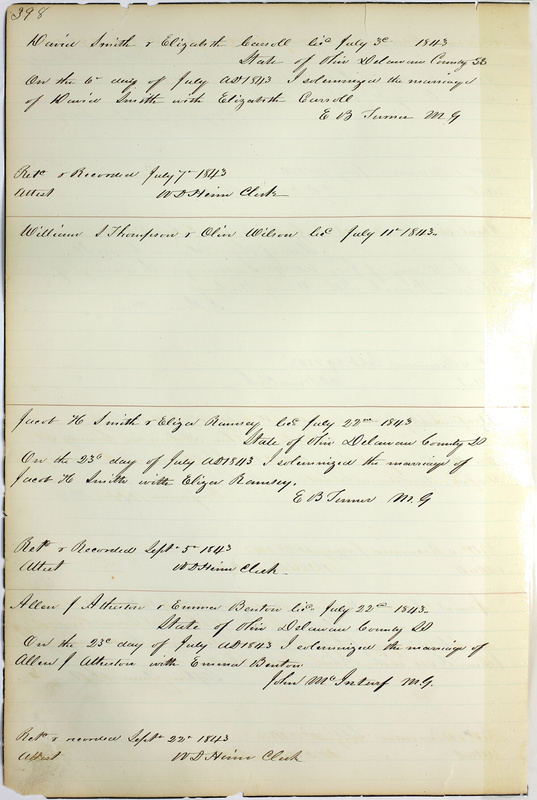 398
David Smith & Elizabeth Carroll Lic July 3d 1843
State of Ohio Delaware County SS
On the 6th day of July AD 1843 I solemnized the marriage
of David Smith with Elizabeth Carroll
E B Turner M.G
Retd & Recorded July 7th 1843
Attest W D Heim Clerk
William S Thompson & Olive Wilson Lic July 11th 1843.
Jacob H Smith & Eliza Ramsey Lic July 22nd 1843
State of Ohio Delaware County SS
On the 23d day of July AD 1843 I solemnized the marriage of
Jacob H Smith with Eliza Ramsey.
E B Turner M.G
Retd & Recorded Sept 5th 1843
Attest W D Heim Clerk
Allen J Atherton & Emma Benton Lic July 22d 1843.
State of Ohio Delaware County SS
On the 23d day of July AD 1843 I solemnized the marriage of
Allen J Atherton with Emma Benton
John McInturf M.G.
Retd & recorded Sept 22d 1843
Attest W D Heim Clerk